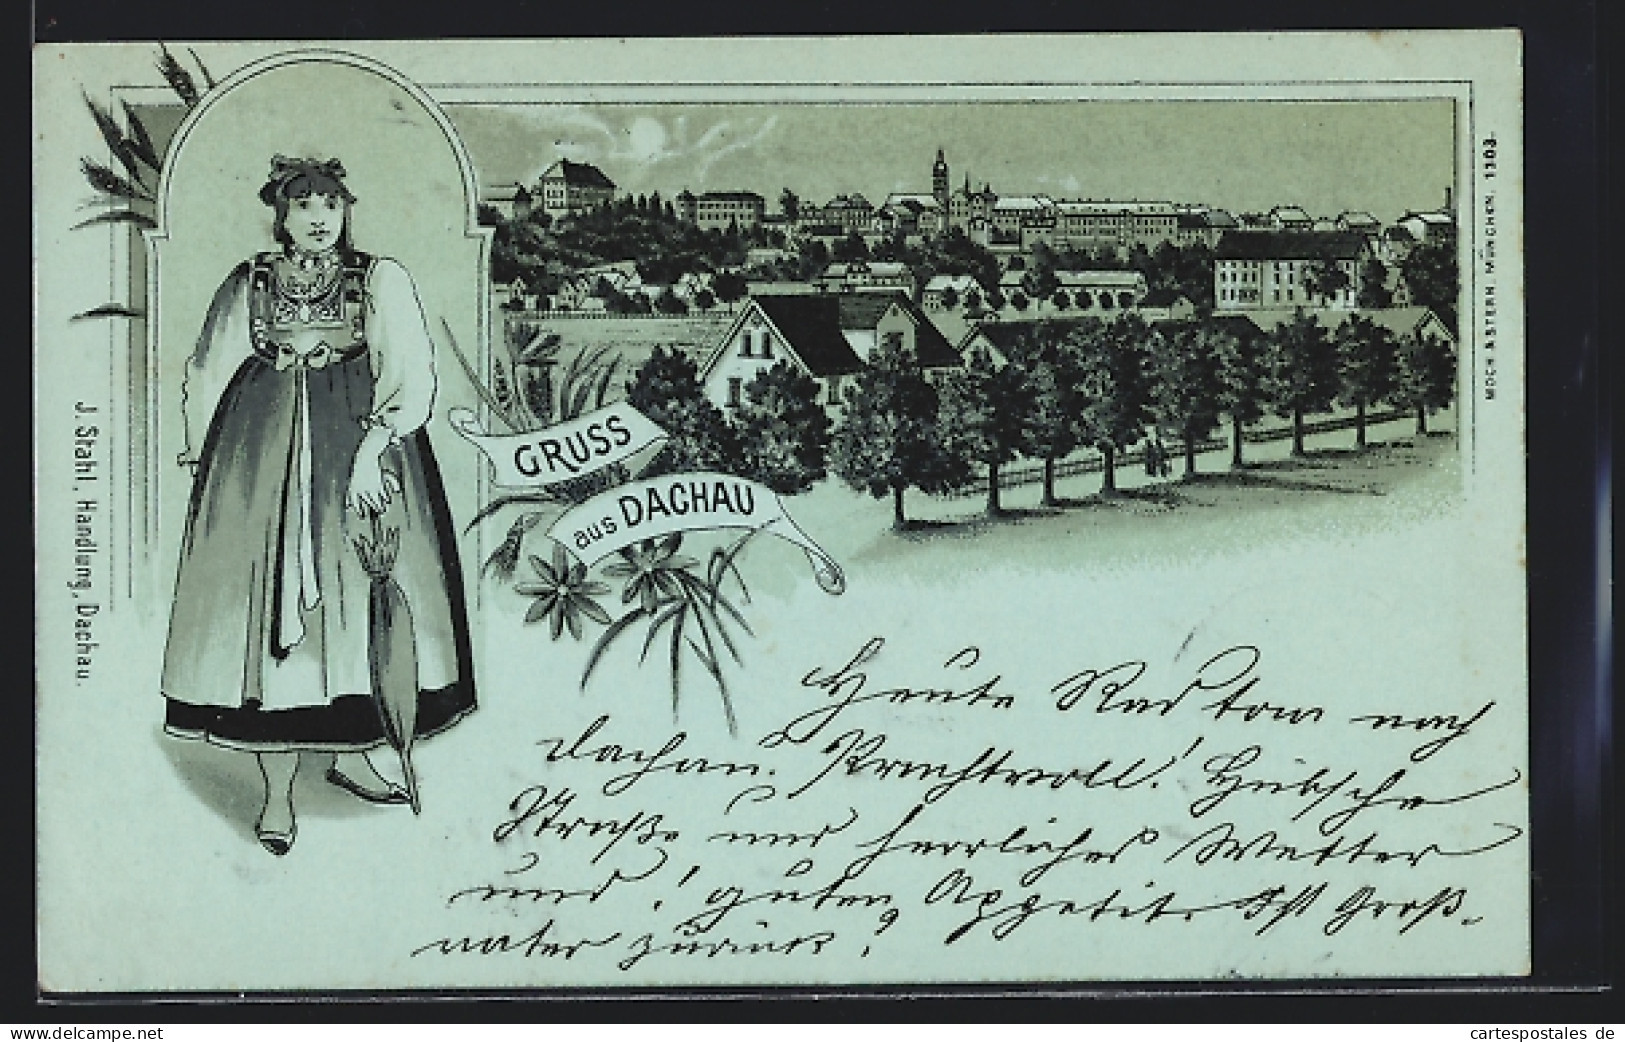 GRUSS
aus DACHAU
J. Stahl, Handlung, Dachau.
MOCH & STERN, MÜNCHEN. 1303.
Heute Rad tour nach
Dachau. Prachtvoll! Hübsche
Straße und herrliches Wetter
und! guten Appetit. Ist Groß-
vater zurück?
www.delcampe.net
cartespostales de